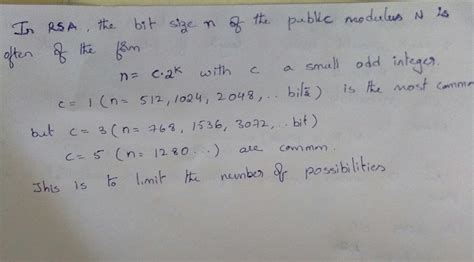 In RSA, the bit size n of the public modulus N is
often of the form
n = c·2^k with c a small odd integer.
c = 1 (n = 512, 1024, 2048, .. bits) is the most comm
but c = 3 (n = 768, 1536, 3072, .. bit)
c = 5 (n = 1280 ...) are common.
This is to limit the number of possibilities